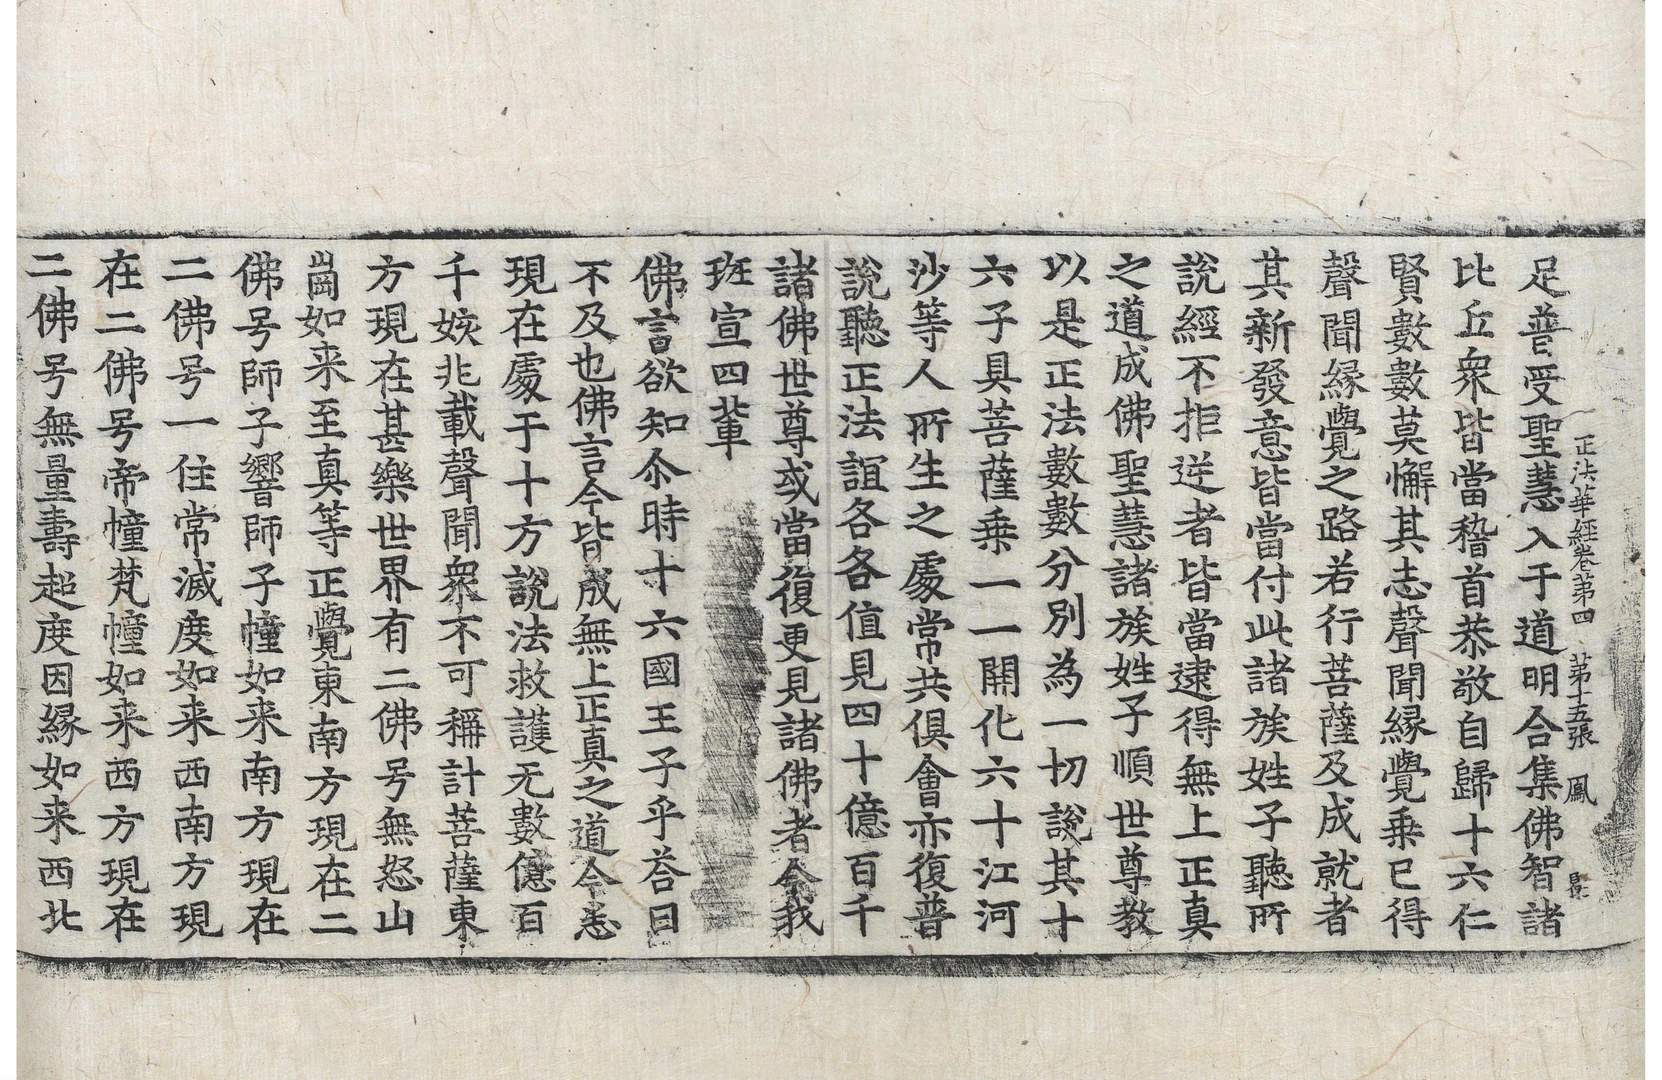 正法華經卷第四 第十五張 鳳
足普受聖慧入于道明合集佛智諸
比丘衆皆當稽首恭敬自歸十六仁
賢數數莫懈其志聲聞緣覺乗已得
聲聞緣覺之路若行菩薩及成就者
其新發意皆當付此諸族姓子聽所
說經不拒逆者皆當逮得無上正真
之道成佛聖慧諸族姓子順世尊教
以是正法數數分別為一切說其十
六子具菩薩乗一一開化六十江河
沙等人所生之處常共俱會亦復普
說聽正法誼各各值見四十億百千
諸佛世尊或當復更見諸佛者今我
班宣四輩
佛言欲知尒時十六國王子乎荅曰
不及也佛言今皆成無上正真之道今悉
現在處于十方說法救護无數億百
千姟兆載聲聞衆不可稱計菩薩東
方現在甚樂世界有二佛号無怒山
崗如来至真等正覺東南方現在二
佛号師子響師子幢如来南方現在
二佛号一住常滅度如来西南方現
在二佛号帝幢梵幢如来西方現在
二佛号無量壽超度因緣如来西北